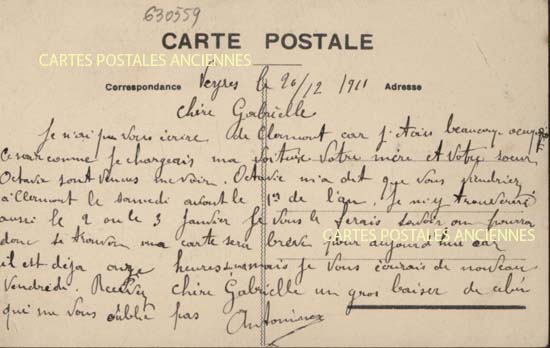 630559
CARTE POSTALE
CARTES POSTALES ANCIENNES
Correspondance Veyres le 20/12 1911 Adresse
Chère Gabrielle
Je n'ai pu vous écrire de Clermont car j'étais beaucoup occupé
Ce soir comme je chargeais ma voiture votre mère et votre soeur
Octavie sont venues me voir. Octavie m'a dit que vous viendriez
à Clermont le samedi avant le 1er de l'an. Je m'y trouverai
aussi le 2 ou le 3 Janvier Je vous le ferais savoir on pourra
donc se trouver ma carte sera brève pour aujourd'hui car
CARTES POSTALES ANCIENNES
il est déja onze heures mais je vous écrirais de nouveau
Vendredi. Recevez chère Gabrielle un gros baiser de celui
qui ne vous oublie pas